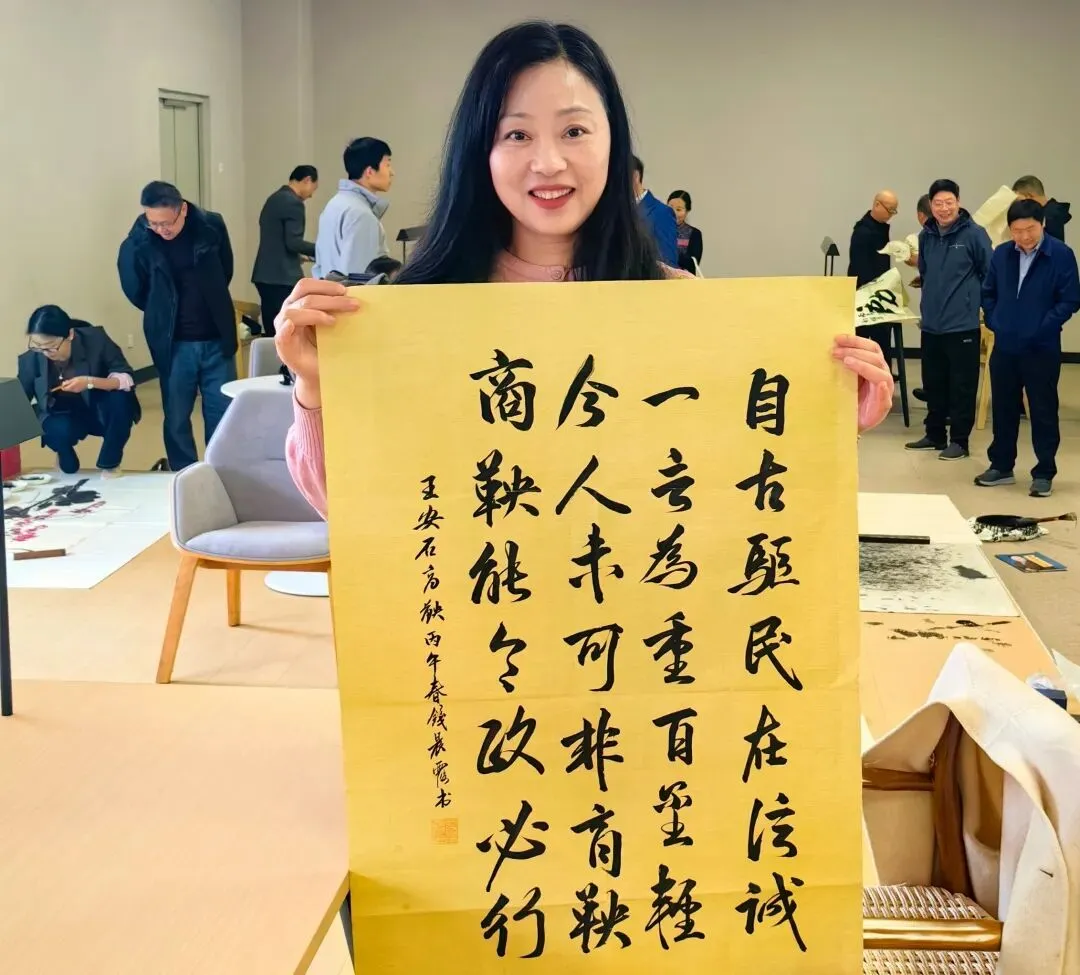 自古驅民在信誠
一言為重百金輕
今人未可非商鞅
商鞅能令政必行
王安石商鞅丙午春錢晨霞书